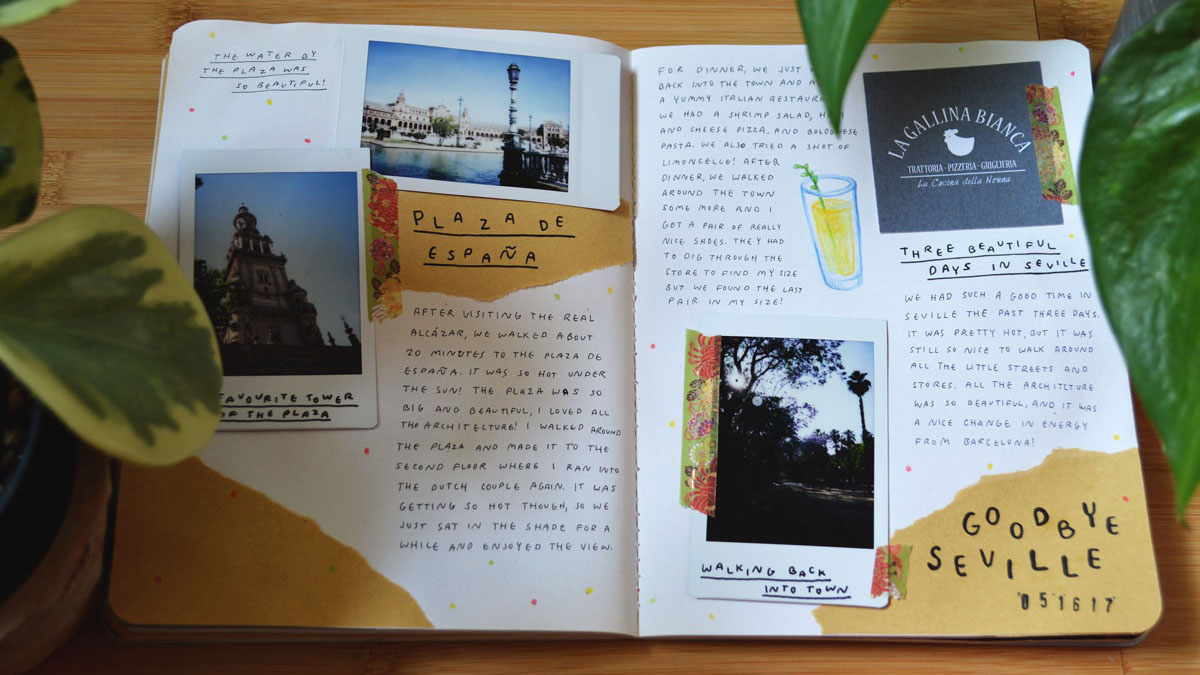 THE WATER BY
THE PLAZA WAS
SO BEAUTIFUL!
FAVOURITE TOWER
OF THE PLAZA
PLAZA DE
ESPAÑA
AFTER VISITING THE REAL
ALCÁZAR, WE WALKED ABOUT
20 MINUTES TO THE PLAZA DE
ESPAÑA. IT WAS SO HOT UNDER
THE SUN! THE PLAZA WAS SO
BIG AND BEAUTIFUL, I LOVED ALL
THE ARCHITECTURE! I WALKED AROUND
THE PLAZA AND MADE IT TO THE
SECOND FLOOR WHERE I RAN INTO
THE DUTCH COUPLE AGAIN. IT WAS
GETTING SO HOT THOUGH, SO WE
JUST SAT IN THE SHADE FOR A
WHILE AND ENJOYED THE VIEW.
FOR DINNER, WE JUST
BACK INTO THE TOWN AND
A YUMMY ITALIAN
WE HAD A SHRIMP SALAD, HAM
AND CHEESE PIZZA, AND BOLOGNESE
PASTA. WE ALSO TRIED A SHOT OF
LIMONCELLO! AFTER
DINNER, WE WALKED
AROUND THE TOWN
SOME MORE AND I
GOT A PAIR OF REALLY
NICE SHOES. THEY HAD
TO DIG THROUGH THE
STORE TO FIND MY SIZE
BUT WE FOUND THE LAST
PAIR IN MY SIZE!
WALKING BACK
INTO TOWN
LA GALLINA BIANCA
TRATTORIA · PIZZERIA · GRIGLIERIA
La Cucina della Nonna
THREE BEAUTIFUL
DAYS IN SEVILLE
WE HAD SUCH A GOOD TIME IN
SEVILLE THE PAST THREE DAYS.
IT WAS PRETTY HOT, BUT IT WAS
STILL SO NICE TO WALK AROUND
ALL THE LITTLE STREETS AND
STORES. ALL THE ARCHITCTURE
WAS SO BEAUTIFUL, AND IT WAS
A NICE CHANGE IN ENERGY
FROM BARCELONA!
GOODBYE
SEVILLE
051617